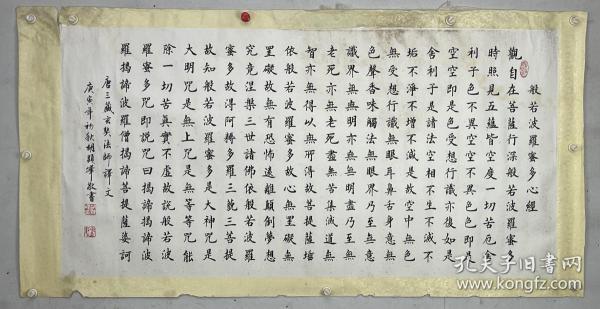 般若波羅蜜多心經
觀自在菩薩行深般若波羅蜜多
時照見五蘊皆空度一切苦厄舍
利子色不異空空不異色色即是
空空即是色受想行識亦復如是
舍利子是諸法空相不生不滅不
垢不淨不增不減是故空中無色
無受想行識無眼耳鼻舌身意無
色聲香味觸法無眼界乃至無意
識界無無明亦無無明盡乃至無
老死亦無老死盡無苦集滅道無
智亦無得以無所得故菩提薩埵
依般若波羅蜜多故心無罣礙無
罣礙故無有恐怖遠離顛倒夢想
究竟涅槃三世諸佛依般若波羅
蜜多故得阿耨多羅三藐三菩提
故知般若波羅蜜多是大神咒是
大明咒是無上咒是無等等咒能
除一切苦真實不虛故說般若波
羅蜜多咒即說咒曰揭諦揭諦波
羅揭諦波羅僧揭諦菩提薩婆訶
唐三藏玄奘法師譯文
庚寅年初秋胡顯敬書
孔夫子旧书网
www.kongfz.com